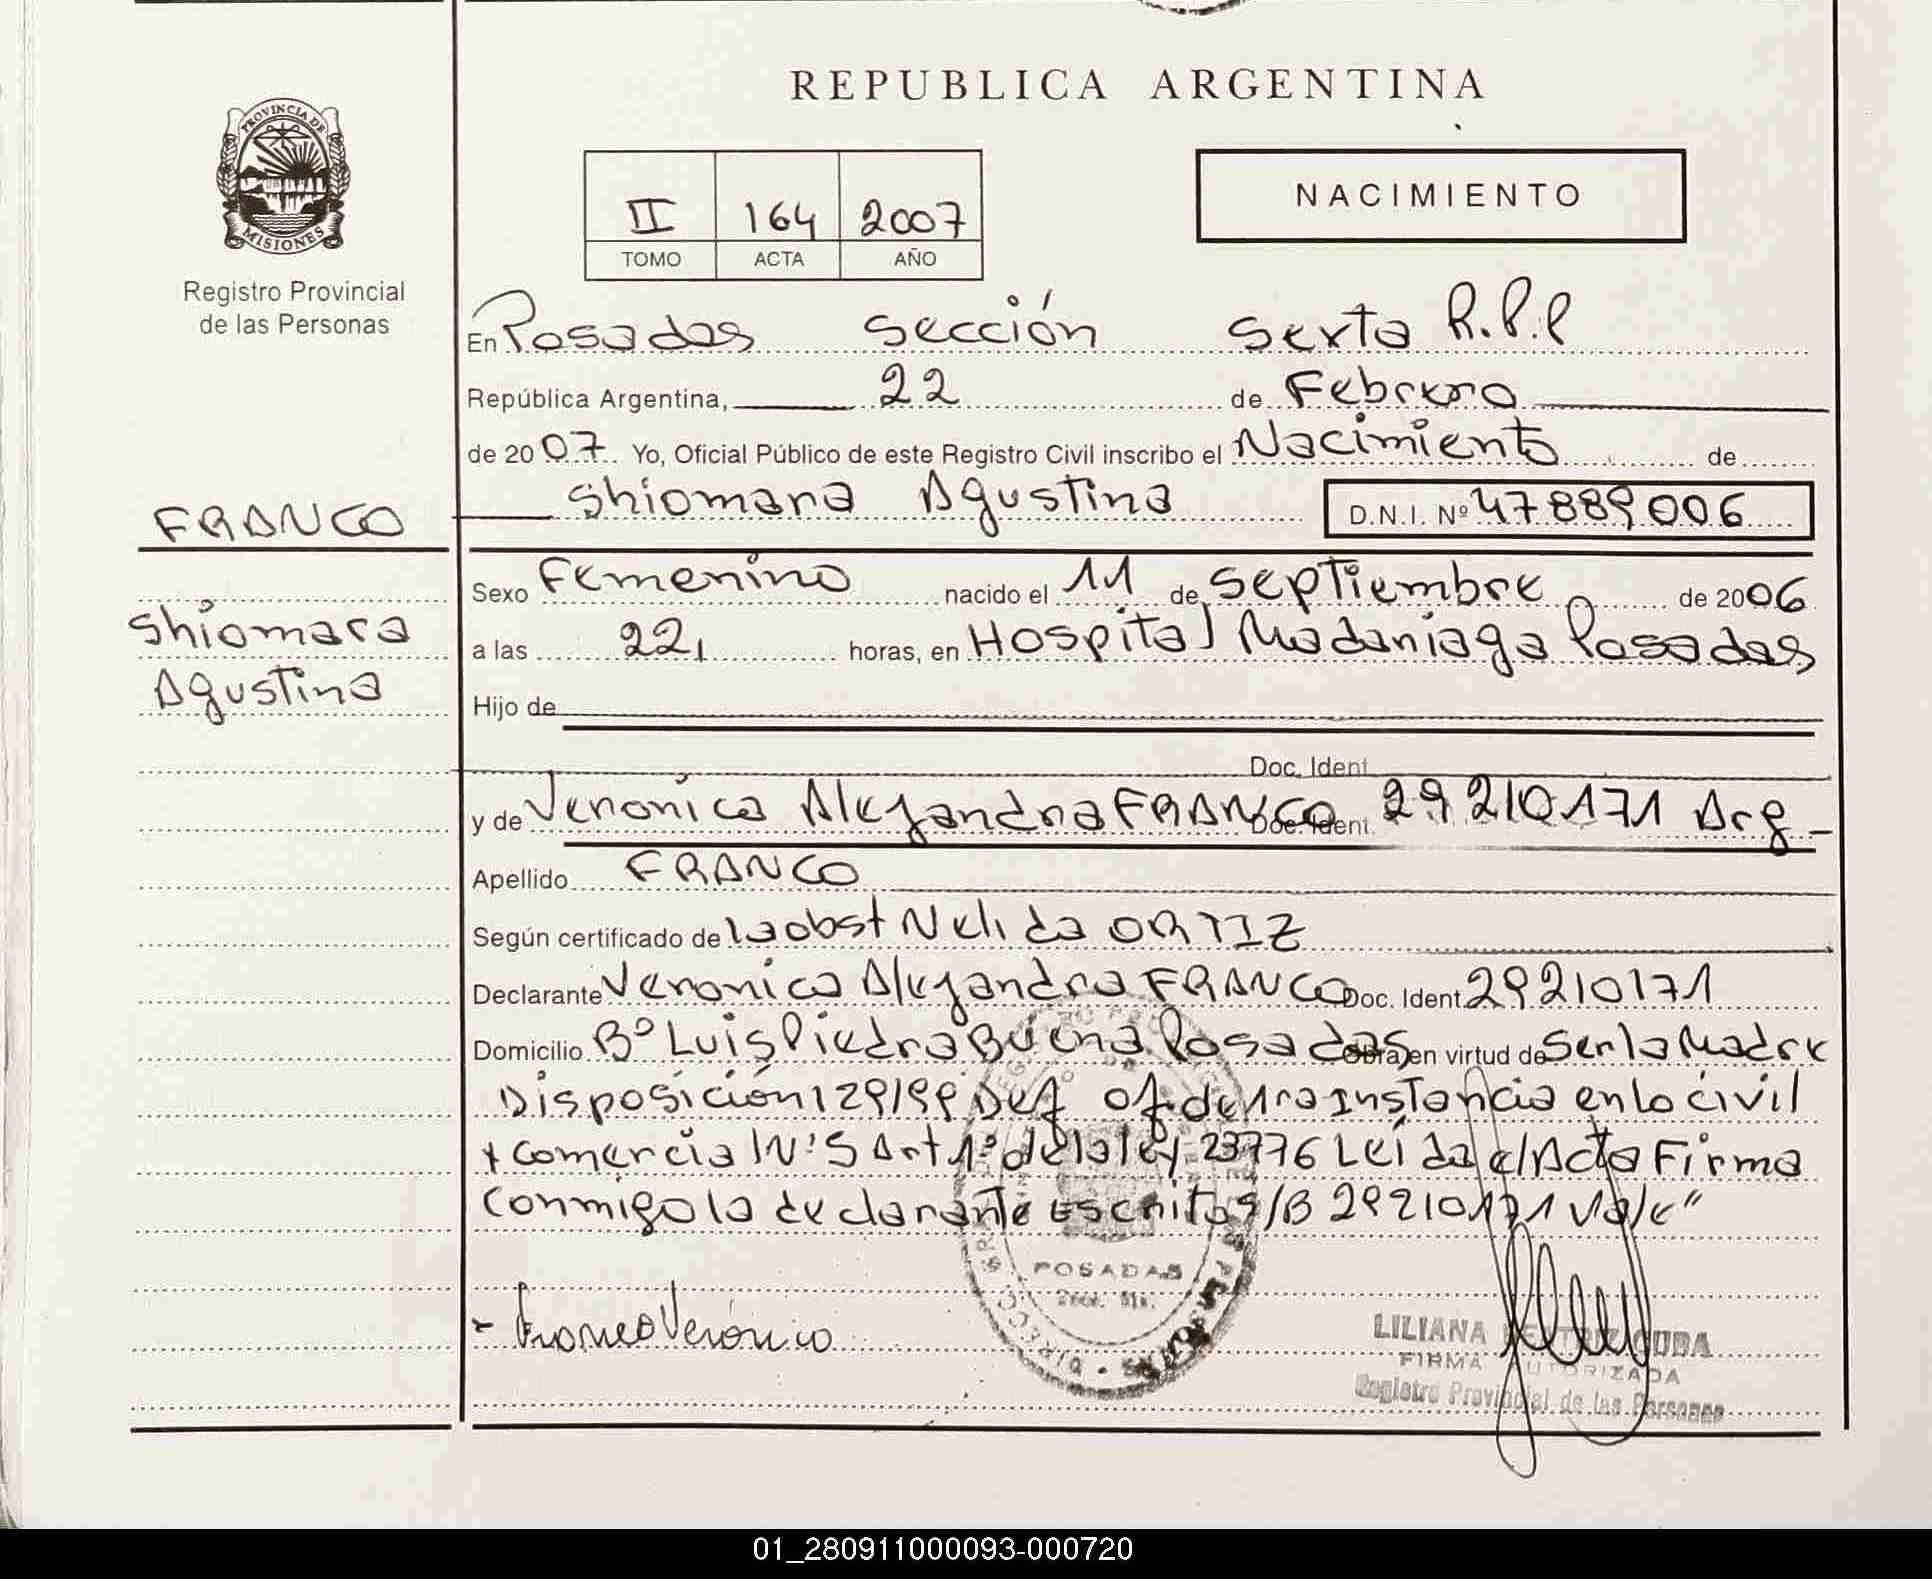 REPUBLICA ARGENTINA
PROVINCIA DE
MISIONES
Registro Provincial
de las Personas
II 164 2007
TOMO ACTA AÑO
NACIMIENTO
En Posadas Sección Sexta R.P.P
República Argentina, 22 de Febrero
de 2007 Yo, Oficial Público de este Registro Civil inscribo el Nacimiento de
FRANCO
Shiomara Agustina D.N.I. Nº 47889006
Shiomara
Agustina
Sexo Femenino nacido el 11 de Septiembre de 2006
a las 22, horas, en Hospital Madaniaga Posadas
Hijo de
Doc. Ident
y de Veronica Alejandra FRANCO Doc. Ident. 29210171 Arg
Apellido FRANCO
Según certificado de la obst Nelida ORTIZ
Declarante Veronica Alejandra FRANCO Doc. Ident. 29210171
Domicilio Bº Luis Piedra Buena Posadas Obra, en virtud de Ser la Madre
Disposición 129/99 Def of de 1ra Instancia en lo civil
y Comercial Nº 5 Art 1º de la ley 23776 Leída el Acta Firma
conmigo la declarante Escrito s/B 29210171 Vale"
POSADAS
Franco Veronica
LILIANA BEATRIZ CUBA
FIRMA AUTORIZADA
Registro Provincial de las Personas
01_280911000093-000720